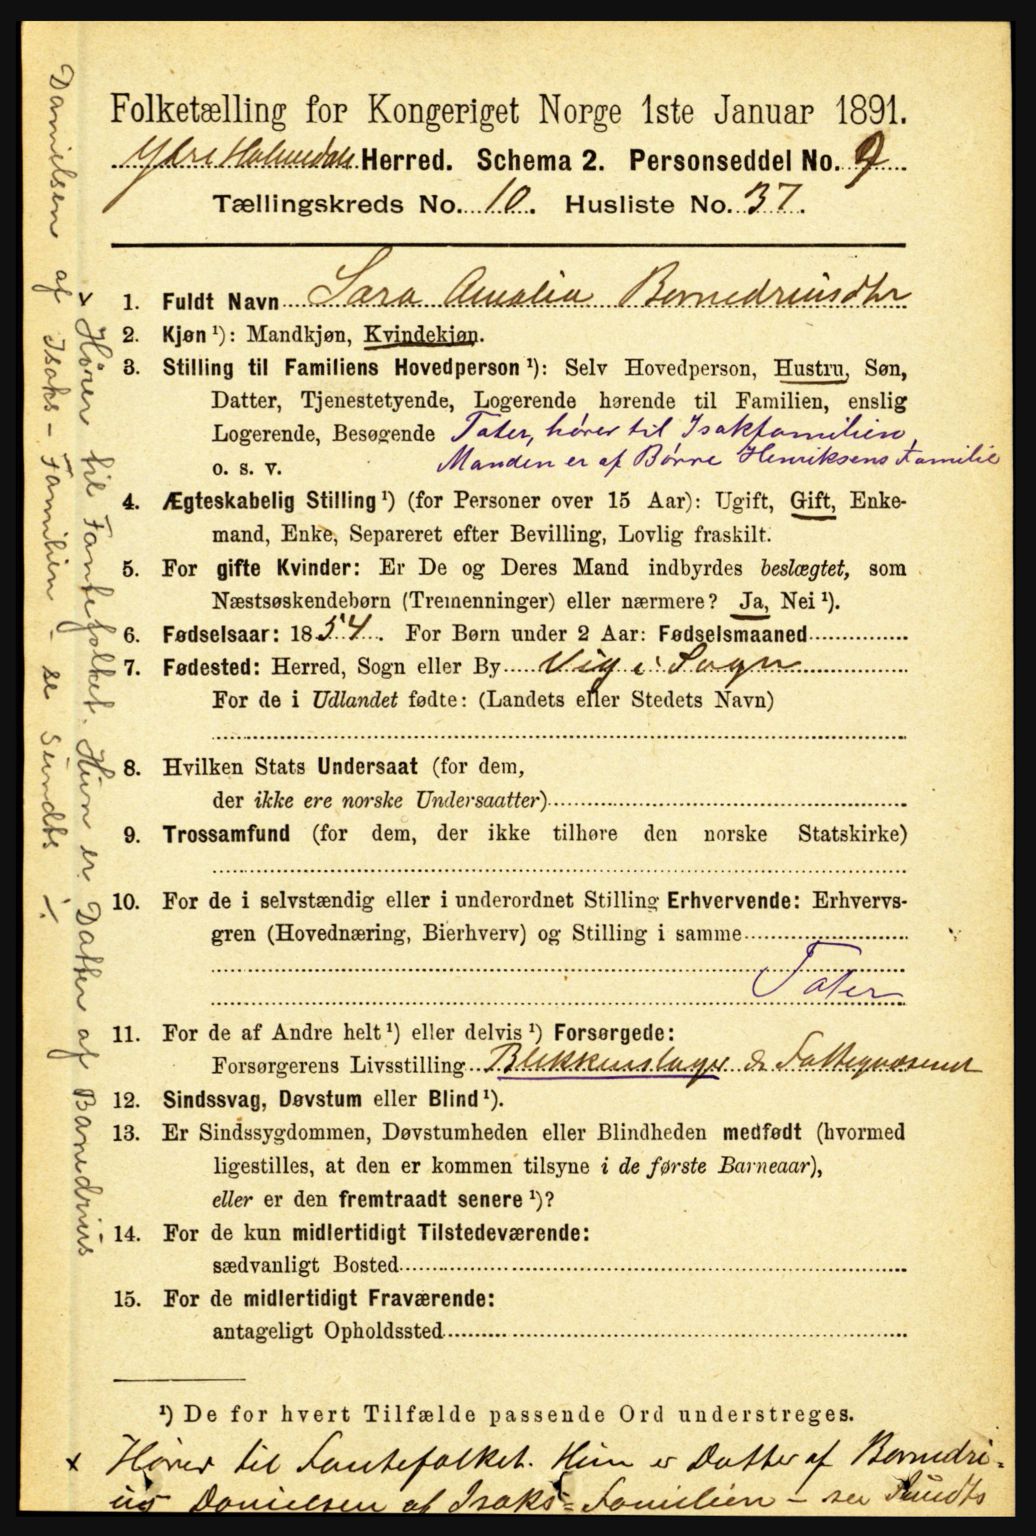 Folketælling for Kongeriget Norge 1ste Januar 1891.
Ytre Holmedals Herred. Schema 2. Personseddel No. 9
Tællingskreds No. 10. Husliste No. 37.
1. Fuldt Navn Sara Amalia Bernedriusdtr
2. Kjøn ¹): Mandkjøn, Kvindekjøn.
3. Stilling til Familiens Hovedperson ¹): Selv Hovedperson, Hustru, Søn,
Datter, Tjenestetyende, Logerende hørende til Familien, enslig
Logerende, Besøgende Tater, hører til Isakfamilien,
o. s. v. Manden er af Børre Henriksens Familie
4. Ægteskabelig Stilling ¹) (for Personer over 15 Aar): Ugift, Gift, Enke-
mand, Enke, Separeret efter Bevilling, Lovlig fraskilt.
5. For gifte Kvinder: Er De og Deres Mand indbyrdes beslægtet, som
Næstsøskendebørn (Tremenninger) eller nærmere? Ja, Nei ¹).
6. Fødselsaar: 1854. For Børn under 2 Aar: Fødselsmaaned
7. Fødested: Herred, Sogn eller By Vig i Sogn
For de i Udlandet fødte: (Landets eller Stedets Navn)
8. Hvilken Stats Undersaat (for dem,
der ikke ere norske Undersaatter)
9. Trossamfund (for dem, der ikke tilhøre den norske Statskirke)
10. For de i selvstændig eller i underordnet Stilling Erhvervende: Erhvervs-
gren (Hovednæring, Bierhverv) og Stilling i samme
Tater
11. For de af Andre helt ¹) eller delvis ¹) Forsørgede:
Forsørgerens Livsstilling Blikkenslager & Fattigvæsenet
12. Sindssvag, Døvstum eller Blind ¹).
13. Er Sindssygdommen, Døvstumheden eller Blindheden medfødt (hvormed
ligestilles, at den er kommen tilsyne i de første Barneaar),
eller er den fremtraadt senere ¹)?
14. For de kun midlertidigt Tilstedeværende:
sædvanligt Bosted
15. For de midlertidigt Fraværende:
antageligt Opholdssted
¹) De for hvert Tilfælde passende Ord understreges.
x Hører til Fantefolket. Hun er Datter af Bernedri=
us Danielsen af Isaks=Familien – se Sundts
x Hører til Fantefolket. Hun er Datter af Banedrius
Danielsen af Isaks-Familien - se Sundts -/.